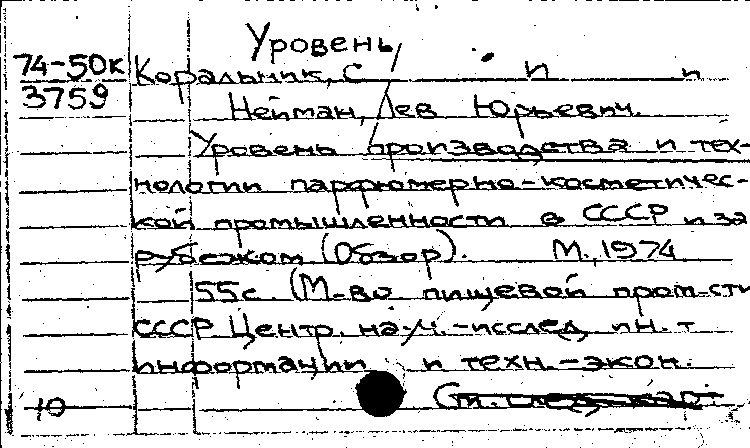 Уровень
74-50к Коральник, С И и
3759 Нейман, Лев Юрьевич.
Уровень производства и тех-
нологии парфюмерно-косметичес-
кой промышленности в СССР и за
рубежом (Обзор). М., 1974
55с. (М-во пищевой пром-сти
СССР Центр. науч.-исслед. ин. т
информации и техн.-экон.
10 См. след. кар